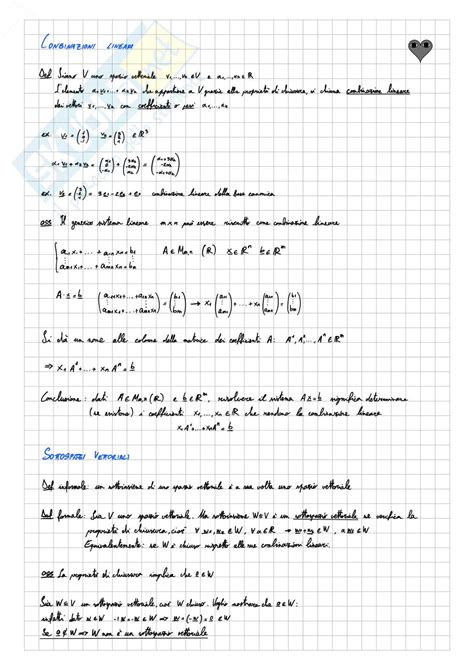 COMBINAZIONI LINEARI
Def Siano V uno spazio vettoriale v₁,…,vₙ ∈ V e α₁,…,αₙ ∈ ℝ
L'elemento α₁v₁+…+αₙvₙ che appartiene a V grazie alle proprietà di chiusura, si chiama combinazione lineare
dei vettori v₁,…,vₙ con coefficienti o pesi α₁,…,αₙ
ex. ∈ ℝ³
α₁v₁ + α₂v₂ =
ex. = 3e₁ - 2e₂ + e₃ combinazione lineare della base canonica
oss Il generico sistema lineare m×n può essere riscritto come combinazione lineare
a₁₁x₁+…+a₁ₙxₙ=b₁ A ∈ Mₘ,ₙ (ℝ) x ∈ ℝⁿ b ∈ ℝᵐ
aₘ₁x₁+…+aₘₙxₙ=bₘ
A·x = b (a₁₁x₁+…+a₁ₙxₙ ⋮ aₘ₁x₁+…+aₘₙxₙ) = (b₁ ⋮ bₘ) → x₁ (a₁₁ ⋮ aₘ₁) +…+ xₙ (a₁ₙ ⋮ aₘₙ) = (b₁ ⋮ bₘ)
Si dà un nome alle colonne della matrice dei coefficienti A: A¹, A²,…, Aⁿ ∈ ℝᵐ
⇒ x₁A¹+…+xₙAⁿ = b
Conclusione: dati A ∈ Mₘ,ₙ(ℝ) e b ∈ ℝᵐ, risolvere il sistema Ax = b significa determinare
(se esistono) i coefficienti x₁,…,xₙ ∈ ℝ che rendono la combinazione lineare
x₁A¹+…+xₙAⁿ = b
SOTTOSPAZI VETTORIALI
Def informale: un sottoinsieme di uno spazio vettoriale è a sua volta uno spazio vettoriale
Def formale: Sia V uno spazio vettoriale. Un sottoinsieme W⊆V è un sottospazio vettoriale se verifica la
proprietà di chiusura, cioè ∀ w₁, w₂ ∈ W, ∀ α ∈ ℝ → w₁+w₂ ∈ W, αw ∈ W
Equivalentemente: se W è chiuso rispetto alle sue combinazioni lineari.
oss La proprietà di chiusura implica che 0 ∈ W
Sia W⊆V un sottospazio vettoriale, cioè W chiuso. Voglio mostrare che 0 ∈ W:
infatti dato w ∈ W -1·w = -w ∈ W ⇒ w + (-w) = 0 ∈ W
Se 0 ∉ W ⇒ W non è un sottospazio vettoriale